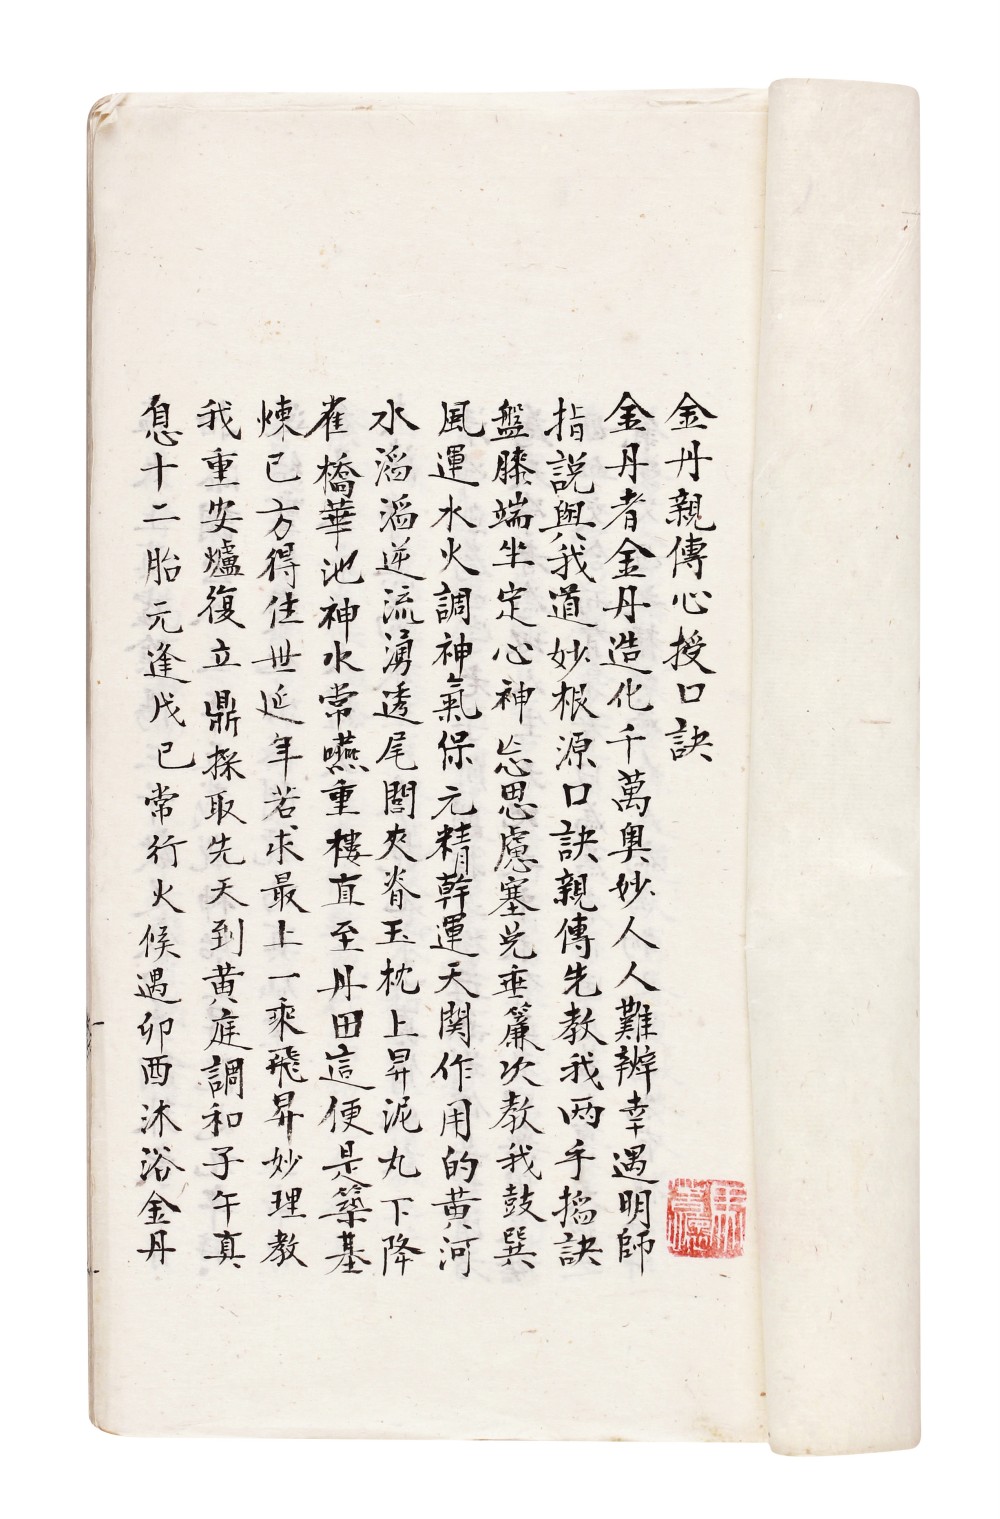 金丹親傳心授口訣
金丹者金丹造化千萬奥妙人人難辨幸遇明師
指説與我道妙根源口訣親傳先教我两手搯訣
盤膝端坐定心神忘思慮塞兑垂簾次教我鼓巽
風運水火調神氣保元精幹運天関作用的黄河
水滔滔逆流湧透尾閭夾脊玉枕上昇泥丸下降
雀橋華池神水常嚥重樓直至丹田這便是築基
煉已方得住世延年若求最上一乘飛昇妙理教
我重安爐復立鼎採取先天到黄庭調和子午真
息十二胎元逢戊已常行火候遇卯酉沐浴金丹